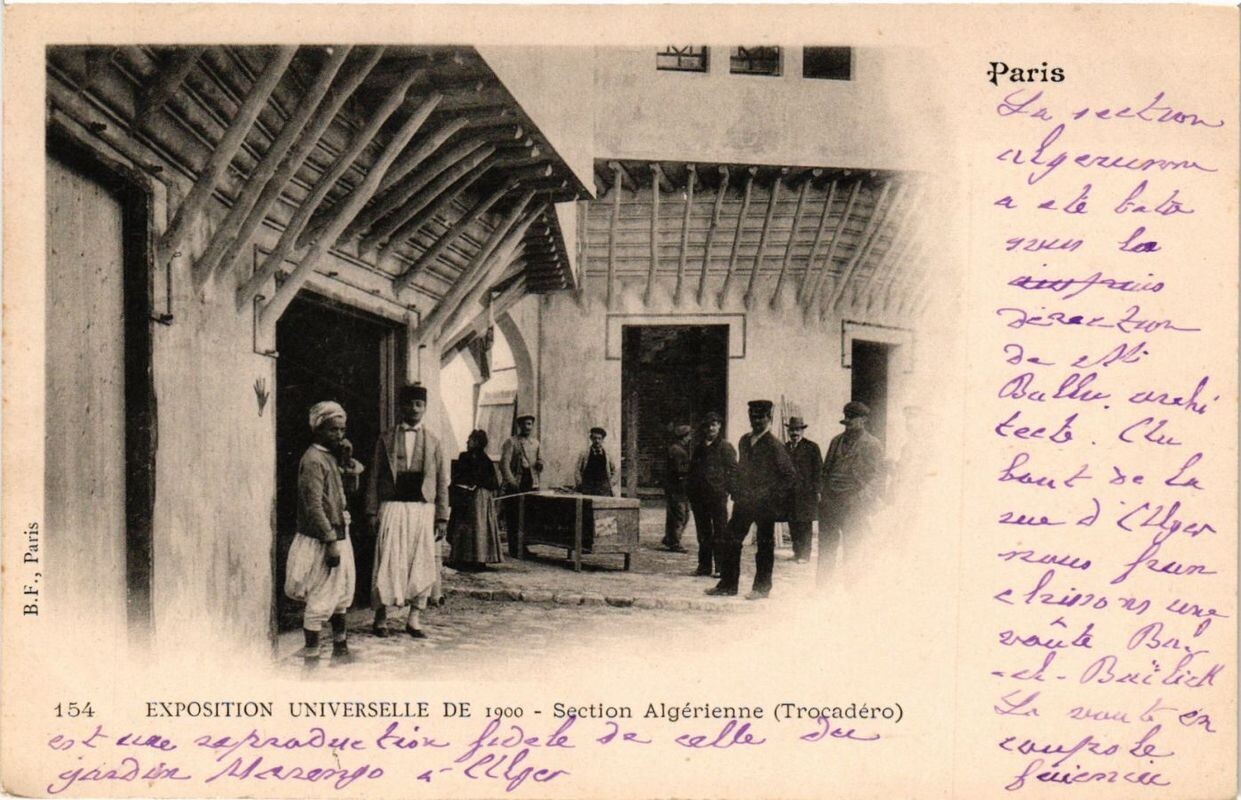 Paris
La section
algerienne
a eté batie
sous la
direction
de Mr
Ballu. archi
tecte. Au
bout de la
rue d'Alger
nous fran
chissons une
voûte Bal
-el-
La voute en
coupole
154 EXPOSITION UNIVERSELLE DE 1900 - Section Algérienne (Trocadéro)
est une reproduction fidele de celle du
jardin Marengo à Alger
B.F., Paris